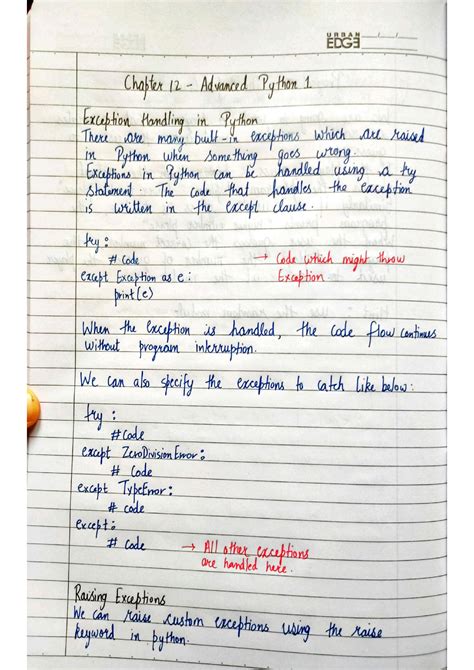 URBAN
EDGE
Chapter 12 - Advanced Python 1
Exception Handling in Python
There are many built-in exceptions which are raised
in Python when something goes wrong.
Exceptions in Python can be handled using a try
statement. The code that handles the exception
is written in the except clause.
try:
# code → Code which might throw
except Exception as e: Exception
print(e)
When the exception is handled, the code flow continues
without program interruption.
We can also specify the exceptions to catch like below:
try:
# Code
except ZeroDivisionError:
# Code
except TypeError:
# code
except:
# code → All other exceptions
are handled here.
Raising Exceptions
We can raise custom exceptions using the raise
keyword in python.